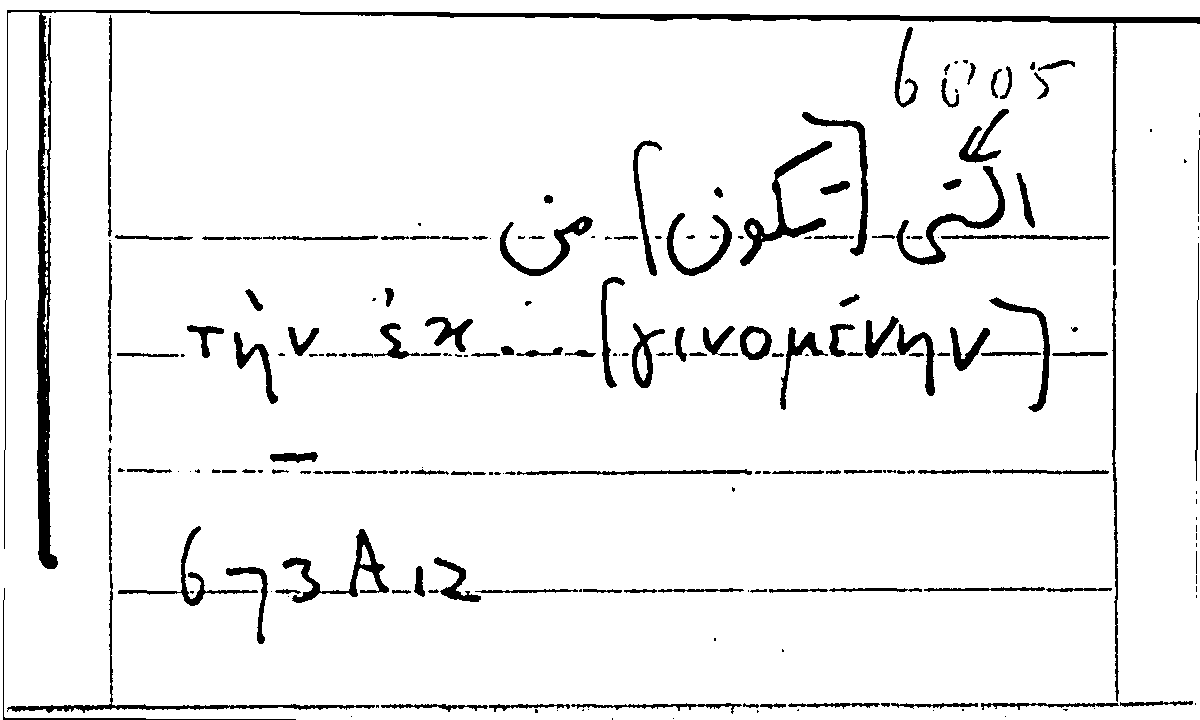 6005
التى [تكون] من
τὴν ἐκ ..... [γινομένην]
673 A 12